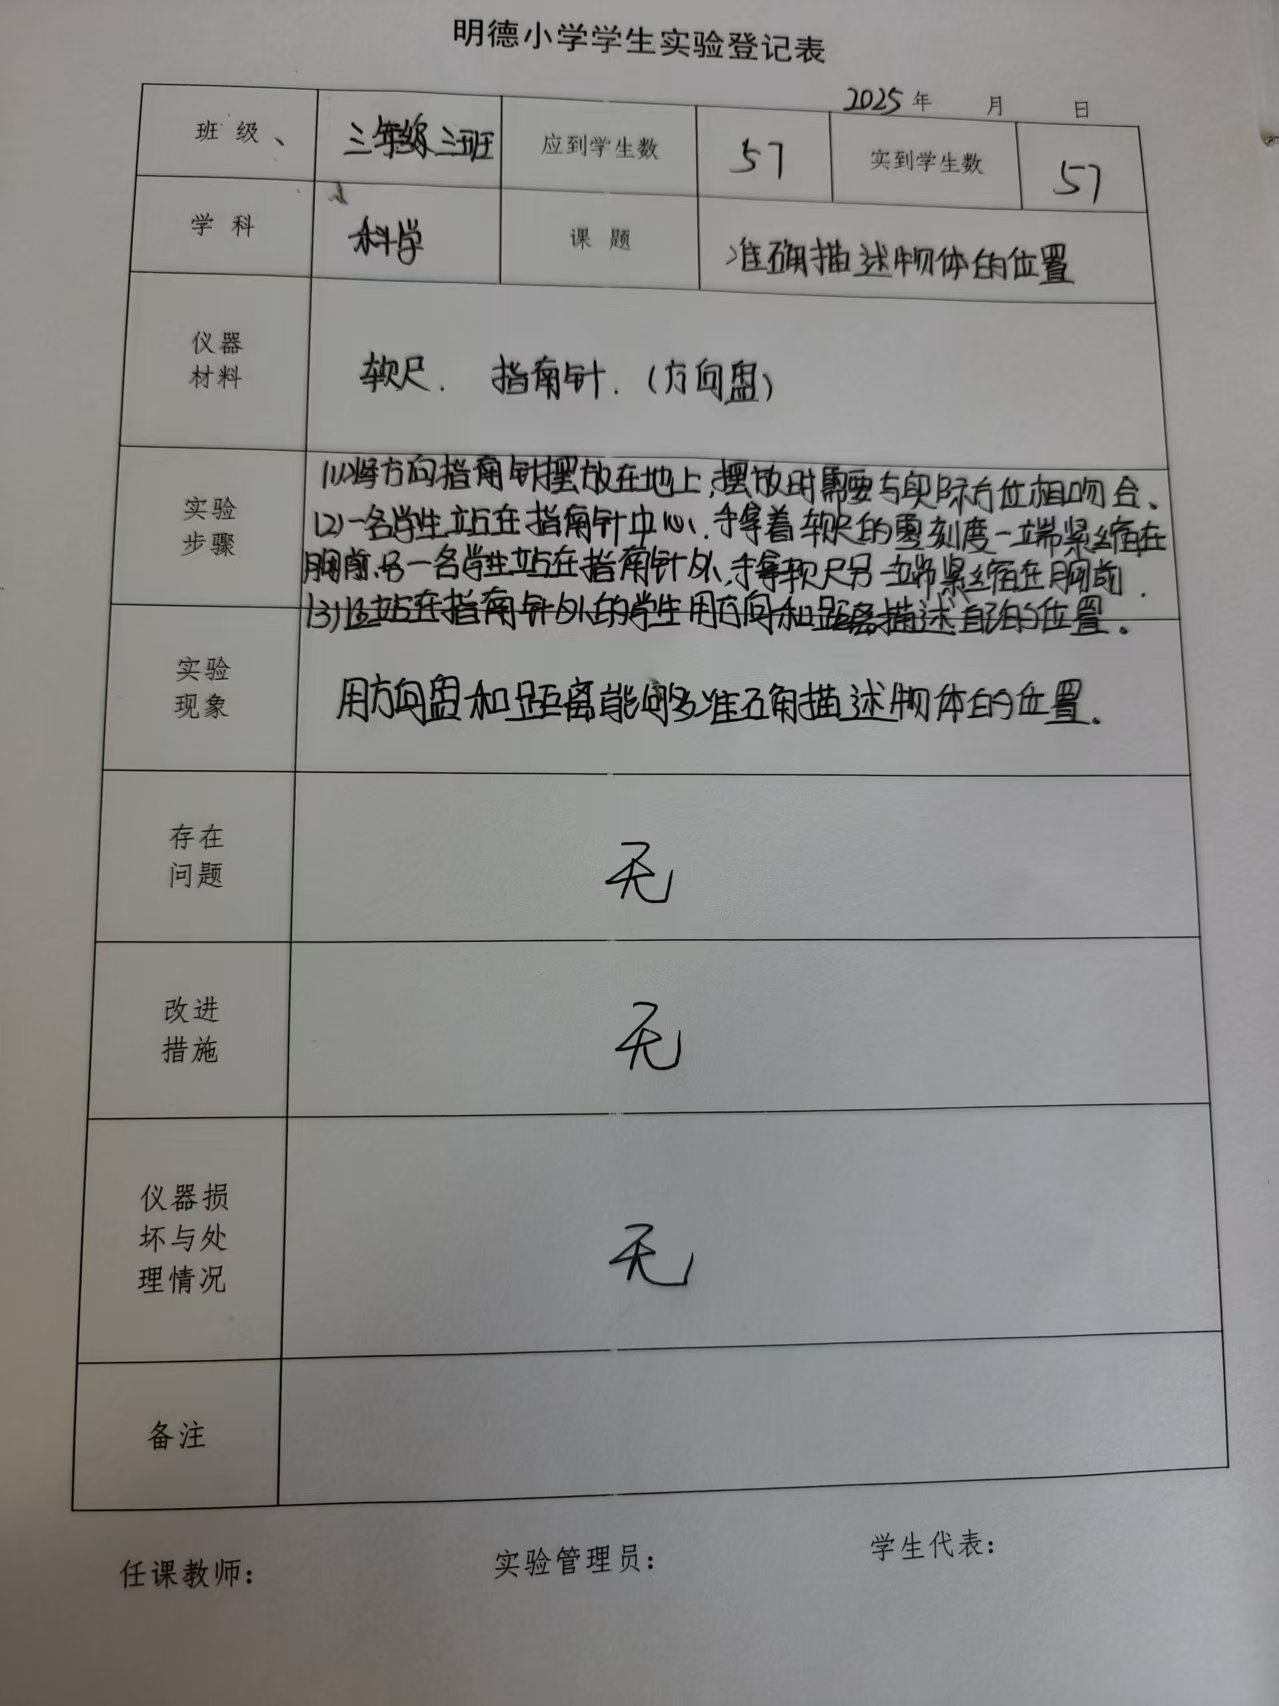 明德小学学生实验登记表
2025 年 月 日
班级、 三年级三班 应到学生数 57 实到学生数 57
学科 科学 课题 准确描述物体的位置
仪器
材料
软尺. 指南针.(方向盘)
实验
步骤
(1)将方向指南针摆放在地上,摆放时需要与实际方位相吻合、
(2)一名学生站在指南针中心、手拿着软尺的零刻度一端紧缩在
胸前.另一名学生站在指南针外,手拿软尺另一端紧缩在胸前.
(3)让站在指南针外的学生用方向和距离描述自己的位置。
实验
现象
用方向盘和距离能够准确描述物体的位置。
存在
问题
无
改进
措施
无
仪器损
坏与处
理情况
无
备注
任课教师: 实验管理员: 学生代表: